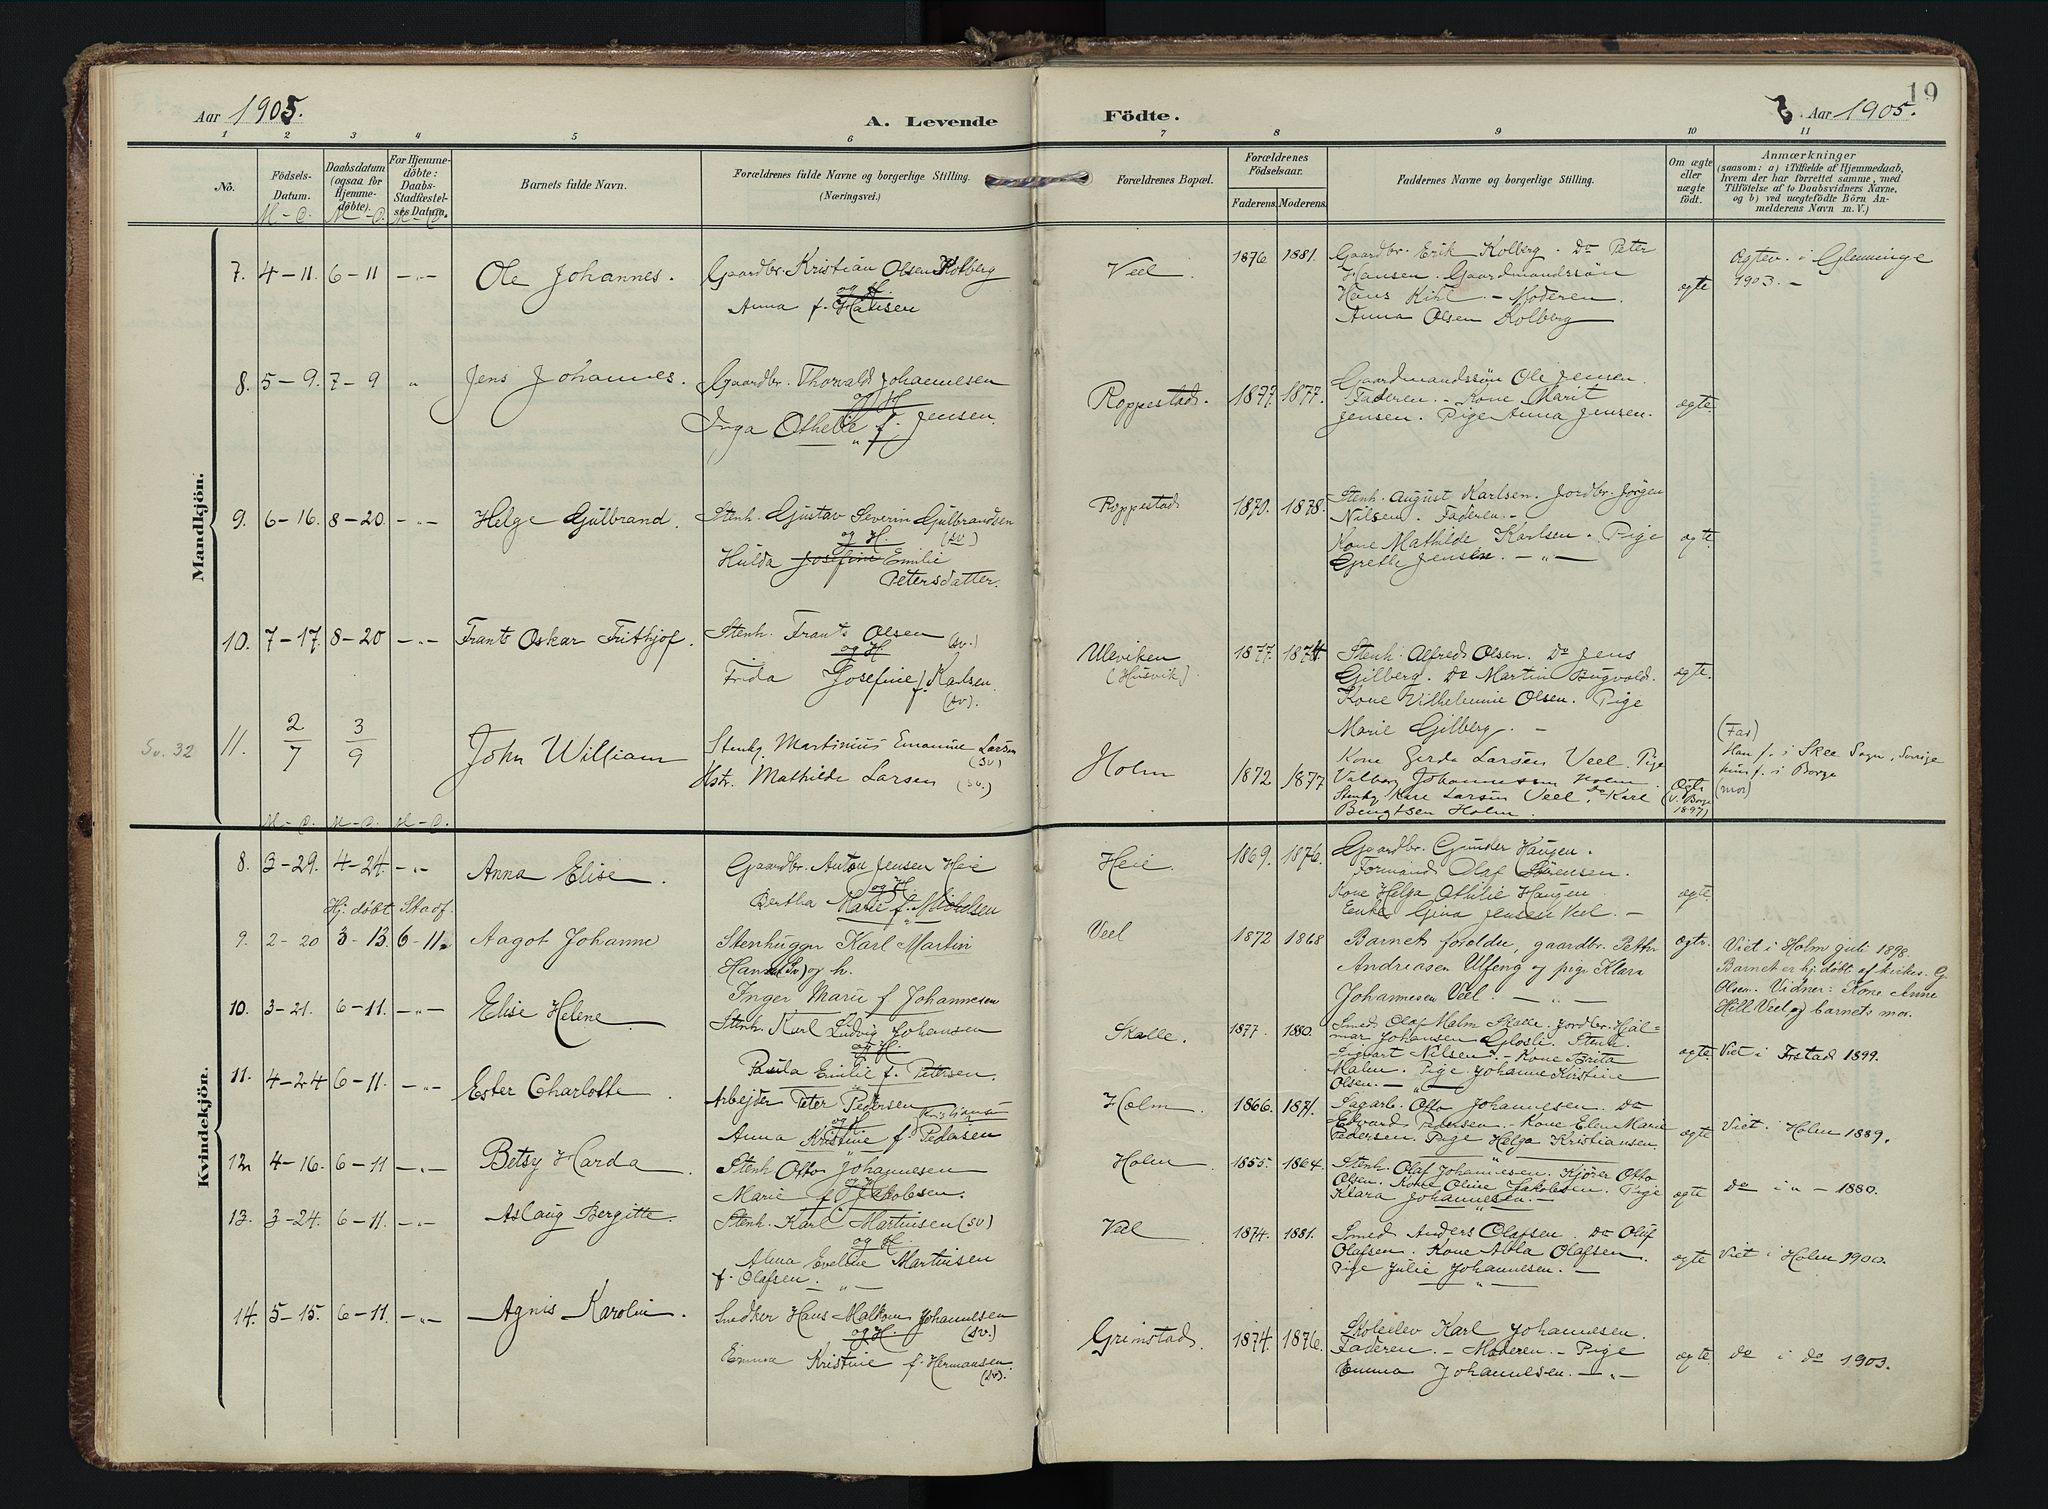 Aar 1905.
A. Levende
Födte.
19
Aar 1905.
1 2 3 4 5 6 7 8 9 10 11
No.
Födsels-
Datum.
M - D.
Daabsdatum
(ogsaa for
Hjemme-
döbte).
M - D.
For Hjemme-
döbte:
Daabs-
Stadfæstel-
ses Datum.
M - D.
Barnets fulde Navn.
Forældrenes fulde Navne og borgerlige Stilling.
(Næringsvei.)
Forældrenes Bopæl.
Forældrenes
Födselsaar.
Faderens.
Moderens.
Faddernes Navne og borgerlige Stilling.
Om ægte
eller
uægte
födt.
Anmærkninger
(saasom: a) i Tilfælde af Hjemmedaab,
hvem der har forrettet samme, med
Tilföielse af to Daabsvidners Navne,
og b) ved uegtefödte Börn An-
melderens Navn m. V.)
Mandkjön.
7. 4-11. 6-11 -"- Ole Johannes.
Gaardbr. Kristian Olsen Kolberg
og H.
Anna f. Hansen
Veel
1876 1881.
Gaardbr. Erik Kolberg. Do Peter
Hansen. Gaardmandssön
Hans Kihl. - Moderen.
Anna Olsen Kolberg
ægte
Ægtev. i Glemminge
1903. -
8. 5-9. 7-9 " Jens Johannes.
Gaardbr. Thorvald Johannesen
og H
Inga Othelie f. Jensen.
Roppestad.
1877. 1877.
Gaardmandssön Ole Jensen.
Faderen. - Kone Marit
Jensen. Pige Anna Jensen.
ægte.
9. 6-16. 8-20. -"- Helge Gulbrand.
Stenh. Gustav Severin Gulbrandsen
og H. (sv)
Hulda Josefine Emilie
Petersdatter.
Roppestad
1870. 1878.
Stenh. August Karlsen. Jordbr. Jørgen
Nilsen. Faderen. -
Kone Mathilde Karlsen. Pige
Grethe Jensen. -"-
ægte.
10. 7-17. 8-20 -"- Frants Oskar Frithjof.
Stenh. Frants Olsen (sv.)
og H
Frida Josefine f. Karlsen.
(sv).
Uleviken
(Husvik).
1877. 1874
Stenh. Alfred Olsen. Do Jens
Gilberg. Do Martin
Kone Vilhelmine Olsen. Pige
Marie Gilberg. -
ægte.
Sv. 32
11. 2/7 3/9 John William
Stenhg. Martinius Emanuel Larsen
(sv)
Hstr. Mathilde Larsen (sv.)
Holm
1872 1877
Kone Gerda Larsen Veel. Pige
Valborg Johannessen Holm
Stenhg Karl Larsen Veel. Do Karl
Bengtsen Holm.
Ægte
(V. Borge
1897)
(Far)
Han f. i Skee Sogn, Sverige
hun f. i Borge
(mor)
M - D. M - D. M - D.
Kvindekjön.
8. 3-29. 4-24. -"- Anna Elise.
Gaardbr. Anton Jensen Heie
og H.
Bertha Marie f. Mikkelsen
Heie
1869. 1876.
Gaardbr. Gunder Haugen.
Formand Olaf Sörensen.
Kone Helga Othilie Haugen
Enke Gina Jensen Veel. -
ægte
Hj. döbt Stadf.
9. 2-20 3-13. 6-11. Aagot Johanne
Stenhugger Karl Martin
Hansen (Sv) og h.
Inger Marie f. Johannesen
Veel
1872 1868
Barnets foreldre, gaardbr. Petter
Andreasen Ulfeng og pige Klara
Johannesen Veel. - " -
ægte.
Viet i Holm juli 1898.
Barnet er hj. döbt af kirkes. G.
Olsen. Vidner: Kone Anne
Hill Veel og barnets mor.
10. 3-21. 6-11. -"- Elise Helene
Stenh. Karl Ludvig Johansen
og H.
Paula Emilie f. Petersen.
Skalle.
1877. 1880.
Smed Olaf Malm Skalle. Jordbr. Hjal-
mar Johansen Glosli. Stenh.
Sigvart Nilsen. - Kone Brita
Malm. Pige Johanne Kristine
Olsen. - " -
ægte
Viet i Idstad 1899.
11. 4-24 6-11. -"- Ester Charlotte
Arbejder Peter Pedersen
og H Kristjansen
Anna Kristine f. Pedersen
Holm
1866. 1871.
Sagarb. Otto Johannesen. Do
Edvard Pedersen. Kone Elen Marie
Pedersen. Pige Helga Kristiansen.
ægte
Viet i Holm 1889.
12. 4-16. 6-11 -"- Betsy Harda
Stenh. Otto Johannesen
og H
Marie f. Jakobsen.
Holm
1855. 1864.
Stenh. Olaf Johannesen. Kjörer Otto
Olsen. Kone Oline Jakobsen. Pige
Klara Johannesen. -
ægte
do i " - 1880.
13. 3-24. 6-11. -"- Aslaug Bergitte.
Stenh. Karl Martinsen (sv)
og H.
Anna Eveline Martinsen
f. Olafsen. "
Veel
1874. 1881.
Smed Anders Olafsen. Do Oluf
Olafsen. Kone Abla Olafsen
Pige Julie Johannesen. -
ægte
Viet i Holm 1900.
14. 5-15. 6-11. -"- Agnis Karolin.
Snedker Hans Malkom Johannesen
og H. (sv.)
Emma Kristine f. Hermansen.
(sv).
Grimstad
1874. 1876.
Skoleelev Karl Johannesen.
Faderen. - Moderen. - Pige
Emma Johannesen. -"-
ægte.
do i do 1903.